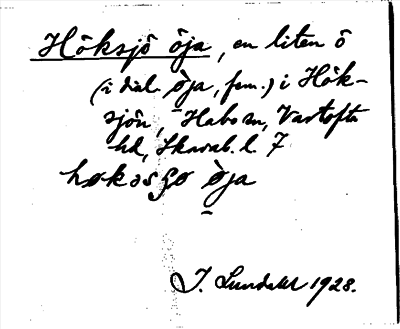 Höksjö öja, en liten ö
(i dial. öja, fem.) i Hök-
sjön, Habo sn, Vartofta
hd, Skarab. l. 7
J. Lundahl 1928.